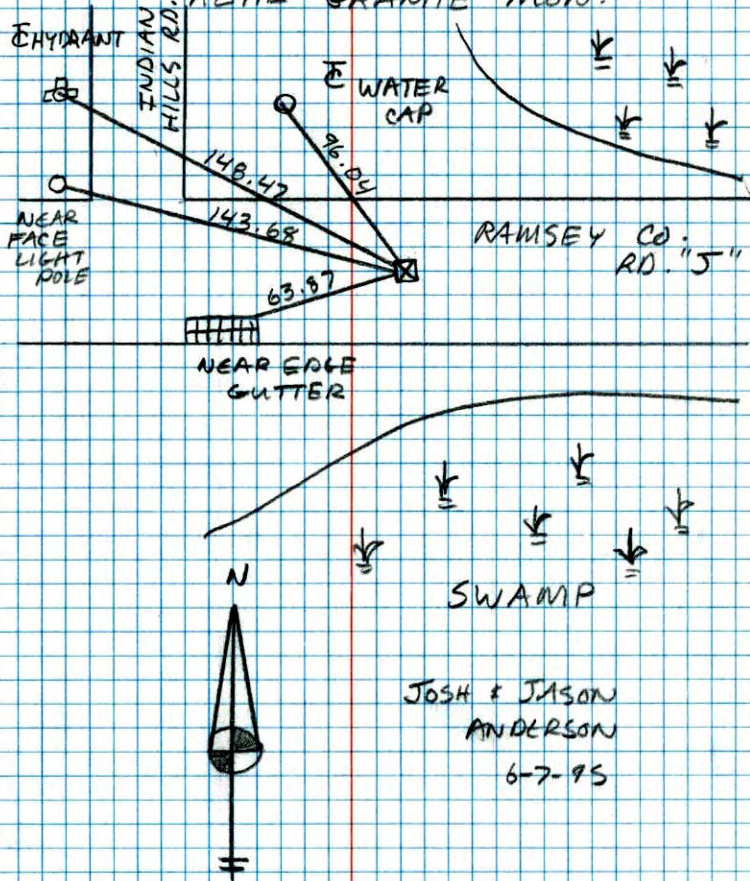 GRANITE MON.
℄ HYDRANT
INDIAN
HILLS RD.
℄ WATER
CAP
148.47
96.04
143.68
63.87
NEAR
FACE
LIGHT
POLE
RAMSEY CO.
RD. "J"
NEAR EDGE
GUTTER
SWAMP
N
JOSH & JASON
ANDERSON
6-7-95